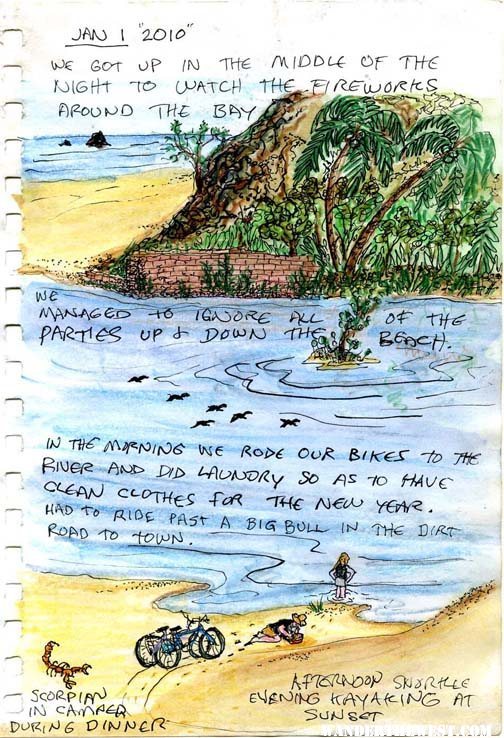 JAN 1 "2010"
WE GOT UP IN THE MIDDLE OF THE
NIGHT TO WATCH THE FIREWORKS
AROUND THE BAY
WE
MANAGED TO IGNORE ALL OF THE
PARTIES UP & DOWN THE BEACH.
IN THE MORNING WE RODE OUR BIKES TO THE
RIVER AND DID LAUNDRY SO AS TO HAVE
CLEAN CLOTHES FOR THE NEW YEAR.
HAD TO RIDE PAST A BIG BULL IN THE DIRT
ROAD TO TOWN.
SCORPIAN
IN CAMPER
DURING DINNER
AFTERNOON SNORKLE
EVENING KAYAKING AT
SUNSET
WANDERTHEWEST.COM